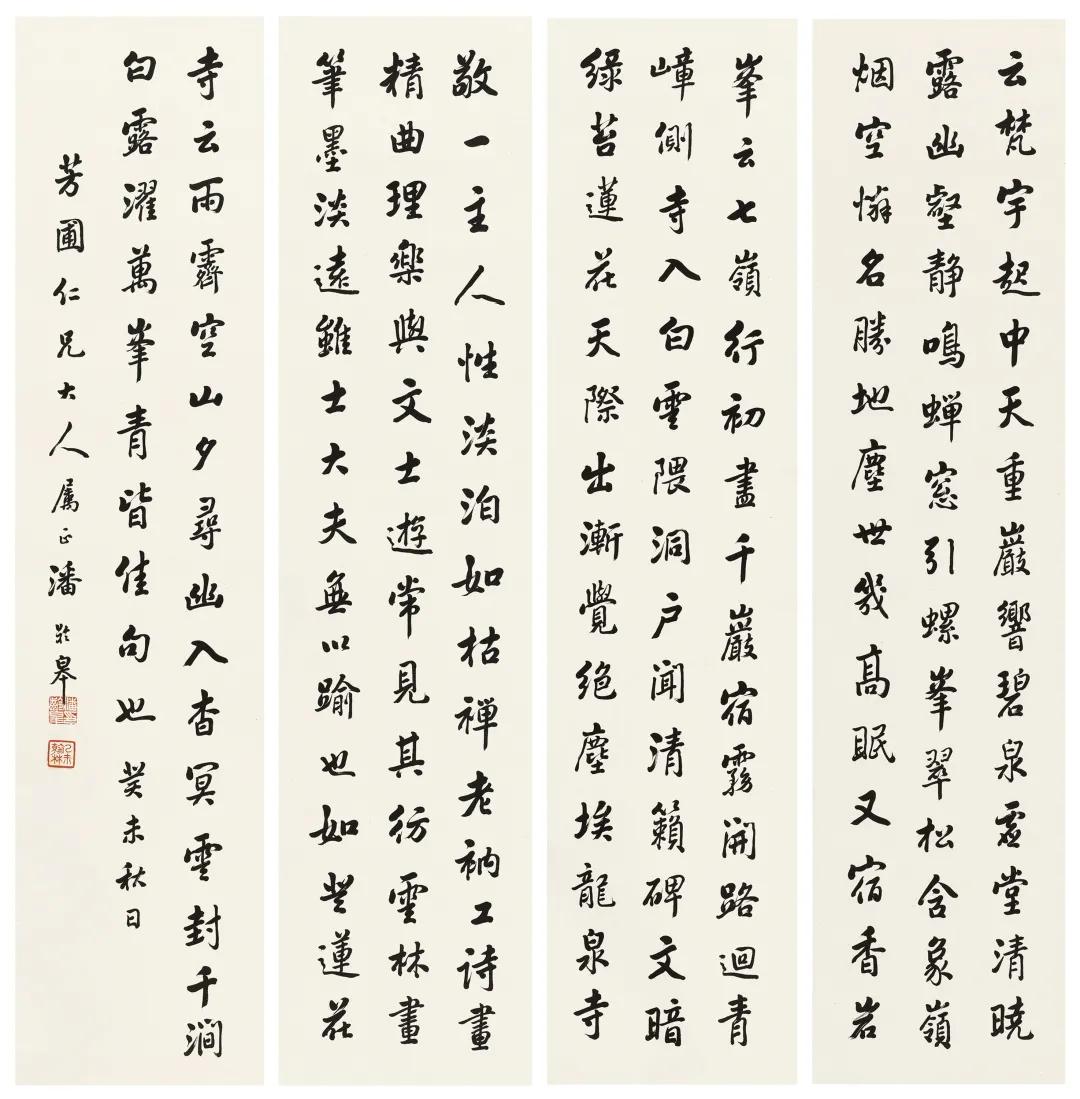 敬一主人性淡泊如枯禅老衲工詩畫
精曲理樂與文士遊常見其彷雲林畫
筆墨淡遠雖士大夫無以踰也如登蓮花
峯云七嶺行初盡千巖宿霧開路迴青
嶂側寺入白雲隈洞户聞清籟碑文暗
綠苔蓮花天際出漸覺絕塵埃龍泉寺
云梵宇起中天重巖響碧泉虛堂清曉
露幽壑静鳴蟬窓引螺峯翠松含象嶺
烟空慚名勝地塵世幾高眠又宿香岩
寺云雨霽空山夕尋幽入杳冥雲封千澗
白露濯萬峯青皆佳句也癸未秋日
芳圃仁兄大人属正潘齡皋
乙未翰林